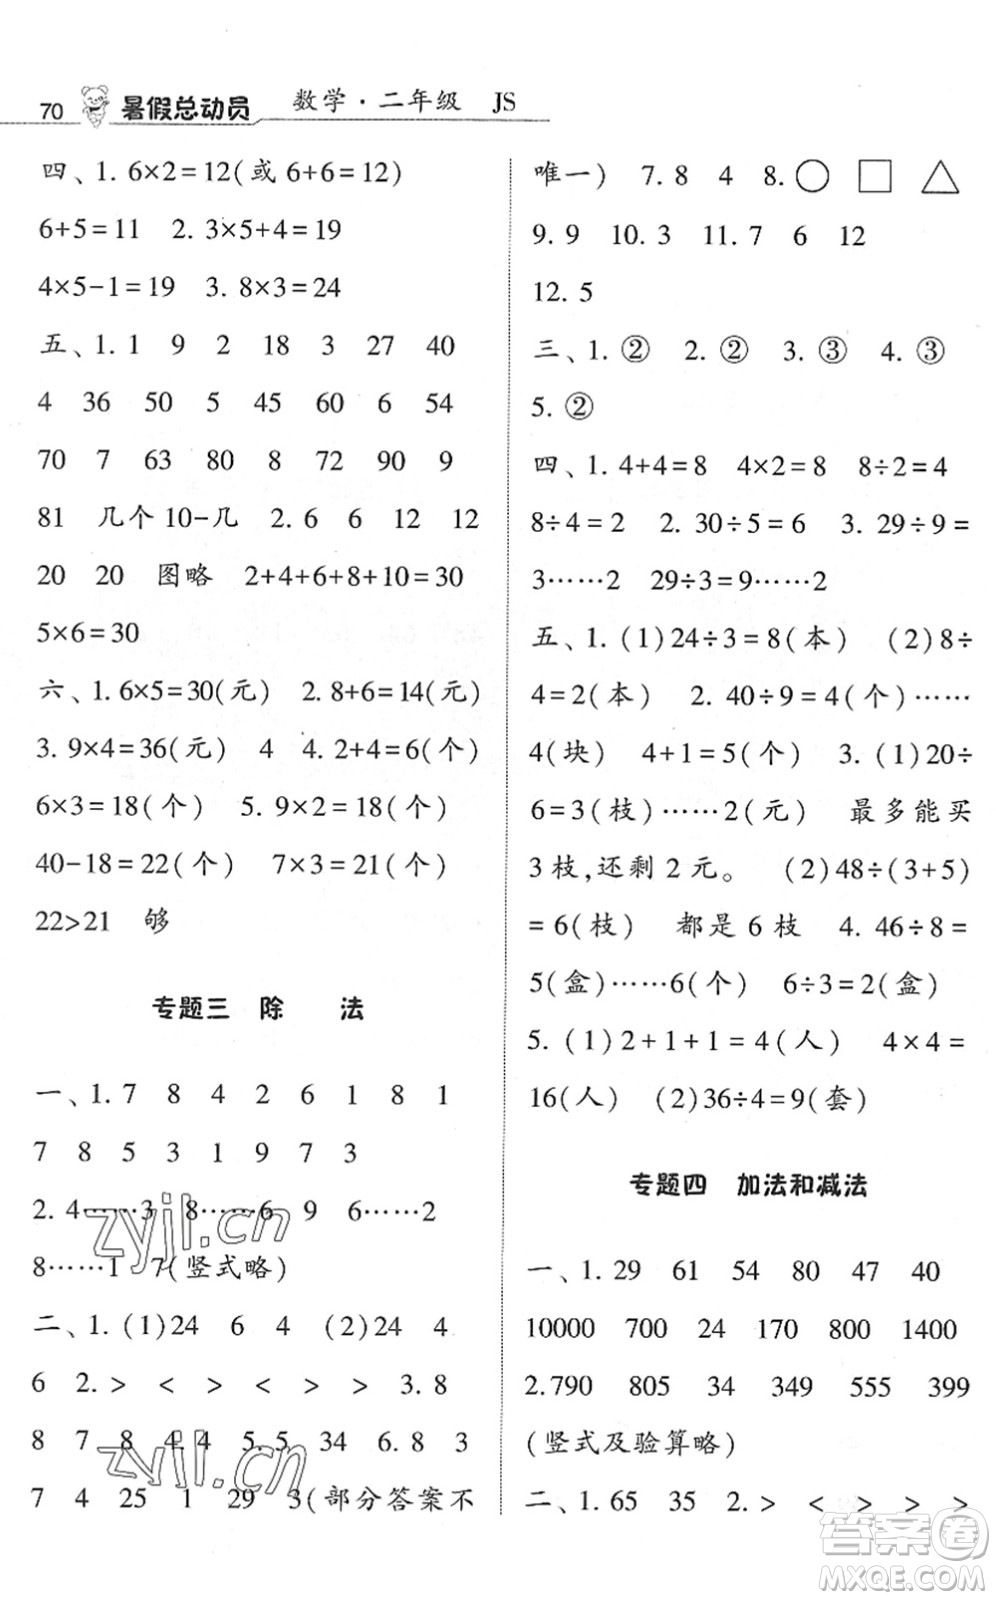 70 暑假总动员 数学·二年级 JS
四、1. 6×2=12(或 6+6=12)
6+5=11 2. 3×5+4=19
4×5-1=19 3. 8×3=24
五、1. 1 9 2 18 3 27 40
4 36 50 5 45 60 6 54
70 7 63 80 8 72 90 9
81 几个 10-几 2. 6 6 12 12
20 20 图略 2+4+6+8+10=30
5×6=30
六、1. 6×5=30(元) 2. 8+6=14(元)
3. 9×4=36(元) 4 4. 2+4=6(个)
6×3=18(个) 5. 9×2=18(个)
40-18=22(个) 7×3=21(个)
22>21 够
专题三 除 法
一、1. 7 8 4 2 6 1 8 1
7 8 5 3 1 9 7 3
2. 4……3 8……6 9 6……2
8……1 7(竖式略)
二、1. (1)24 6 4 (2)24 4
6 2. > < > < > > 3. 8
8 7 8 4. 4 5. 5 34 6. 8 3
7 4 25 1 29 3(部分答案不
唯一) 7. 8 4 8. ○ □ △
9. 9 10. 3 11. 7 6 12
12. 5
三、1. ② 2. ② 3. ③ 4. ③
5. ②
四、1. 4+4=8 4×2=8 8÷2=4
8÷4=2 2. 30÷5=6 3. 29÷9=
3……2 29÷3=9……2
五、1. (1)24÷3=8(本) (2)8÷
4=2(本) 2. 40÷9=4(个)……
4(块) 4+1=5(个) 3. (1)20÷
6=3(枝)……2(元) 最多能买
3枝,还剩2元。 (2)48÷(3+5)
=6(枝) 都是6枝 4. 46÷8=
5(盒)……6(个) 6÷3=2(盒)
5. (1)2+1+1=4(人) 4×4=
16(人) (2)36÷4=9(套)
专题四 加法和减法
一、1. 29 61 54 80 47 40
10000 700 24 170 800 1400
2. 790 805 34 349 555 399
(竖式及验算略)
二、1. 65 35 2. > < > > >
zyjl.cn
zyjl.cn
答案卷
MXQE.COM